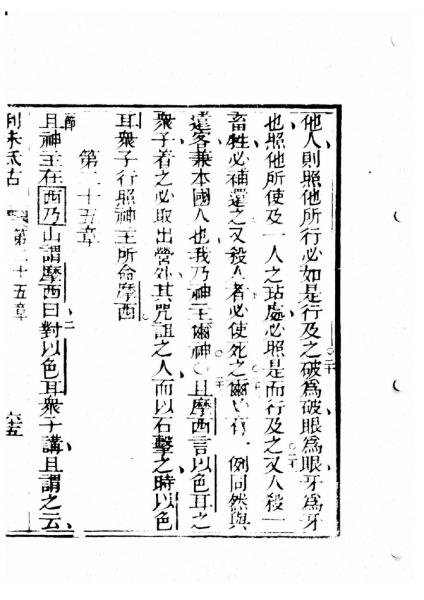 他人則照他所行必如是行及之破為破眼為眼牙為牙
也照他所使及一人之玷處必照是而行及之又人殺一
畜牲必補還之又殺人者必使死之爾必有一例同然與
遠客兼本國人也我乃神主爾神○且摩西言以色耳之
衆子着之必取出營外其咒詛之人而以石擊之時以色
耳衆子行照神主所命摩西
第二十五章
節
且神主在西乃山謂摩西曰對以色耳衆子講且謂之云
利未氏古 第二十五章 六十五